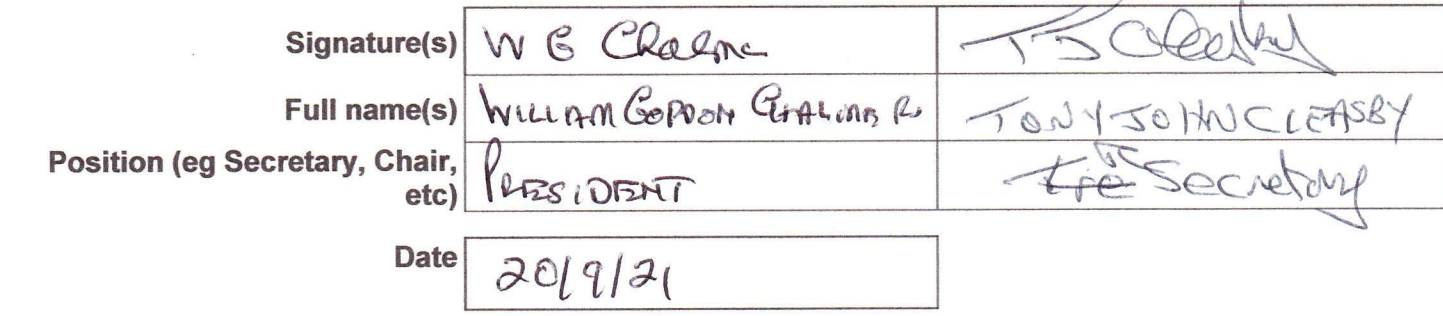 Signature(s) W G Chalmer TJ Cleasby
Full name(s) WILLIAM GORDON CHALMERS TONY JOHN CLEASBY
Position (eg Secretary, Chair, PRESIDENT Secretary
etc)
Date 20/9/21